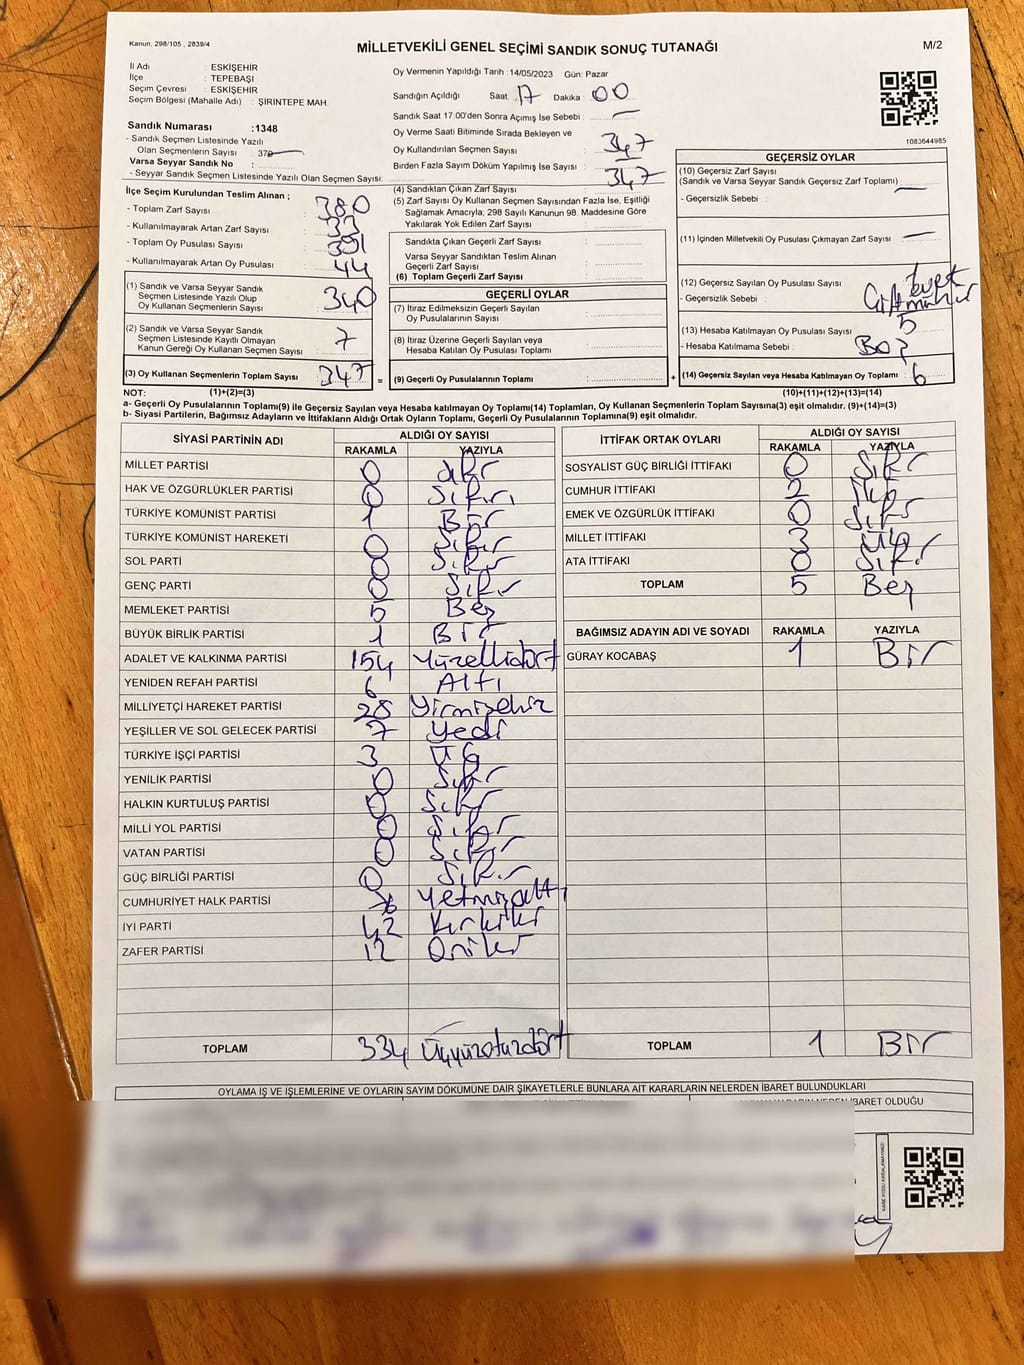 Kanun, 298/105 , 2839/4
MİLLETVEKİLİ GENEL SEÇİMİ SANDIK SONUÇ TUTANAĞI
M/2
İl Adı : ESKİŞEHİR
İlçe : TEPEBAŞI
Seçim Çevresi : ESKİŞEHİR
Seçim Bölgesi (Mahalle Adı) : ŞİRİNTEPE MAH.
Sandık Numarası :1348
- Sandık Seçmen Listesinde Yazılı
Olan Seçmenlerin Sayısı : 379
Varsa Seyyar Sandık No :
- Seyyar Sandık Seçmen Listesinde Yazılı Olan Seçmen Sayısı:
Oy Vermenin Yapıldığı Tarih : 14/05/2023 Gün: Pazar
Sandığın Açıldığı Saat: 17 Dakika : 00
Sandık Saat 17.00'den Sonra Açımış İse Sebebi :
Oy Verme Saati Bitiminde Sırada Bekleyen ve
Oy Kullandırılan Seçmen Sayısı : 347
Birden Fazla Sayım Döküm Yapılmış İse Sayısı : 347
1083644985
İlçe Seçim Kurulundan Teslim Alınan ;
- Toplam Zarf Sayısı : 380
- Kullanılmayarak Artan Zarf Sayısı : 33
- Toplam Oy Pusulası Sayısı : 391
- Kullanılmayarak Artan Oy Pusulası : 44
(1) Sandık ve Varsa Seyyar Sandık
Seçmen Listesinde Yazılı Olup
Oy Kullanan Seçmenlerin Sayısı : 340
(2) Sandık ve Varsa Seyyar Sandık
Seçmen Listesinde Kayıtlı Olmayan
Kanun Gereği Oy Kullanan Seçmen Sayısı : 7
(3) Oy Kullanan Seçmenlerin Toplam Sayısı : 347 =
(4) Sandıktan Çıkan Zarf Sayısı :
(5) Zarf Sayısı Oy Kullanan Seçmen Sayısından Fazla İse, Eşitliği
Sağlamak Amacıyla, 298 Sayılı Kanunun 98. Maddesine Göre
Yakılarak Yok Edilen Zarf Sayısı :
Sandıkta Çıkan Geçerli Zarf Sayısı :
Varsa Seyyar Sandıktan Teslim Alınan
Geçerli Zarf Sayısı :
(6) Toplam Geçerli Zarf Sayısı :
GEÇERLİ OYLAR
(7) İtiraz Edilmeksizin Geçerli Sayılan
Oy Pusulalarının Sayısı :
(8) İtiraz Üzerine Geçerli Sayılan veya
Hesaba Katılan Oy Pusulası Toplamı :
(9) Geçerli Oy Pusulalarının Toplamı : +
GEÇERSİZ OYLAR
(10) Geçersiz Zarf Sayısı
(Sandık ve Varsa Seyyar Sandık Geçersiz Zarf Toplamı) :
- Geçersizlik Sebebi :
(11) İçinden Milletvekili Oy Pusulası Çıkmayan Zarf Sayısı :
(12) Geçersiz Sayılan Oy Pusulası Sayısı :
- Geçersizlik Sebebi : Çift mühür
(13) Hesaba Katılmayan Oy Pusulası Sayısı : 5
- Hesaba Katılmama Sebebi : Boş
(14) Geçersiz Sayılan veya Hesaba Katılmayan Oy Toplamı : 6
NOT: (1)+(2)=(3) (10)+(11)+(12)+(13)=(14)
a- Geçerli Oy Pusulalarının Toplamı(9) ile Geçersiz Sayılan veya Hesaba katılmayan Oy Toplamı(14) Toplamları, Oy Kullanan Seçmenlerin Toplam Sayısına(3) eşit olmalıdır. (9)+(14)=(3)
b- Siyasi Partilerin, Bağımsız Adayların ve İttifakların Aldığı Ortak Oyların Toplamı, Geçerli Oy Pusulalarının Toplamına(9) eşit olmalıdır.
SİYASİ PARTİNİN ADI ALDIĞI OY SAYISI
RAKAMLA YAZIYLA
MİLLET PARTİSİ 0 sıfır
HAK VE ÖZGÜRLÜKLER PARTİSİ 0 Sıfır
TÜRKİYE KOMÜNİST PARTİSİ 1 Bir
TÜRKİYE KOMÜNİST HAREKETİ 0 Sıfır
SOL PARTİ 0 Sıfır
GENÇ PARTİ 0 Sıfır
MEMLEKET PARTİSİ 5 Beş
BÜYÜK BİRLİK PARTİSİ 1 Bir
ADALET VE KALKINMA PARTİSİ 154 Yüzellidört
YENİDEN REFAH PARTİSİ 6 Altı
MİLLİYETÇİ HAREKET PARTİSİ 28 Yirmisekiz
YEŞİLLER VE SOL GELECEK PARTİSİ 7 Yedi
TÜRKİYE İŞÇİ PARTİSİ 3 Üç
YENİLİK PARTİSİ 0 Sıfır
HALKIN KURTULUŞ PARTİSİ 0 Sıfır
MİLLİ YOL PARTİSİ 0 Sıfır
VATAN PARTİSİ 0 Sıfır
GÜÇ BİRLİĞİ PARTİSİ 0 Sıfır
CUMHURİYET HALK PARTİSİ 76 Yetmişaltı
İYİ PARTİ 42 Kırkiki
ZAFER PARTİSİ 12 Oniki
TOPLAM 334 Üçyüzotuzdört
İTTİFAK ORTAK OYLARI ALDIĞI OY SAYISI
RAKAMLA YAZIYLA
SOSYALİST GÜÇ BİRLİĞİ İTTİFAKI 0 Sıfır
CUMHUR İTTİFAKI 2
EMEK VE ÖZGÜRLÜK İTTİFAKI 0 Sıfır
MİLLET İTTİFAKI 3 Üç
ATA İTTİFAKI 0 Sıfır
TOPLAM 5 Beş
BAĞIMSIZ ADAYIN ADI VE SOYADI RAKAMLA YAZIYLA
GÜRAY KOCABAŞ 1 Bir
TOPLAM 1 Bir
OYLAMA İŞ VE İŞLEMLERİNE VE OYLARIN SAYIM DÖKÜMÜNE DAİR ŞİKAYETLERLE BUNLARA AİT KARARLARIN NELERDEN İBARET BULUNDUKLARI
İBARET OLDUĞU